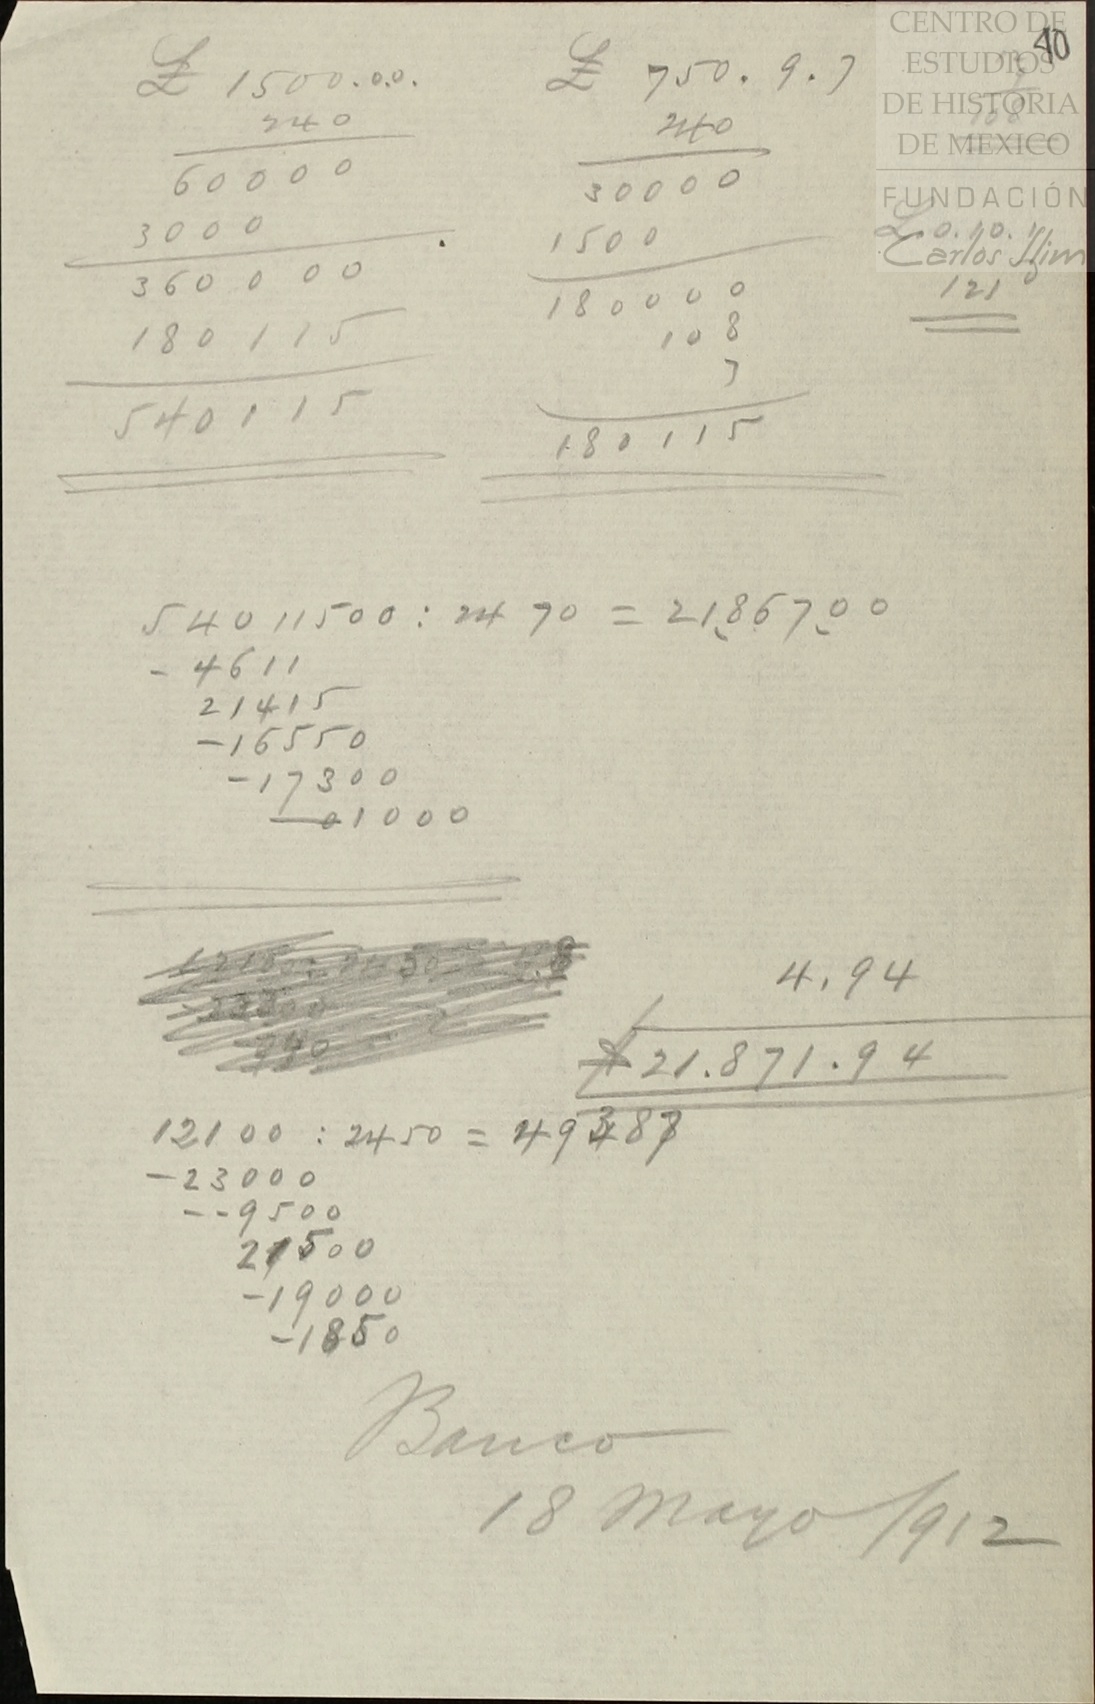 CENTRO DE
ESTUDIOS
DE HISTORIA
DE MEXICO
FUNDACIÓN
Carlos Slim
40
£ 1500.00.
240
60000
3000
360000
180115
540115
£ 750.9.7
240
30000
1500
180000
108
7
180115
108
£ 0.10.1
121
54011500 : 2470 = 2186700
- 4611
21415
- 16550
- 17300
01000
4.94
21.871.94
12100 : 2450 = 49387
- 23000
-- 9500
21500
- 19000
- 1850
Banco
18 Mayo 1912